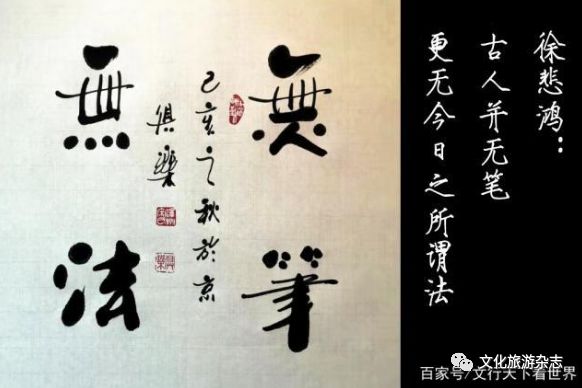 徐悲鸿：
古人并无笔
更无今日之所谓法
無筆
己亥之秋於京
俱樂
無法
文化旅游杂志
百家号/文行天下看世界